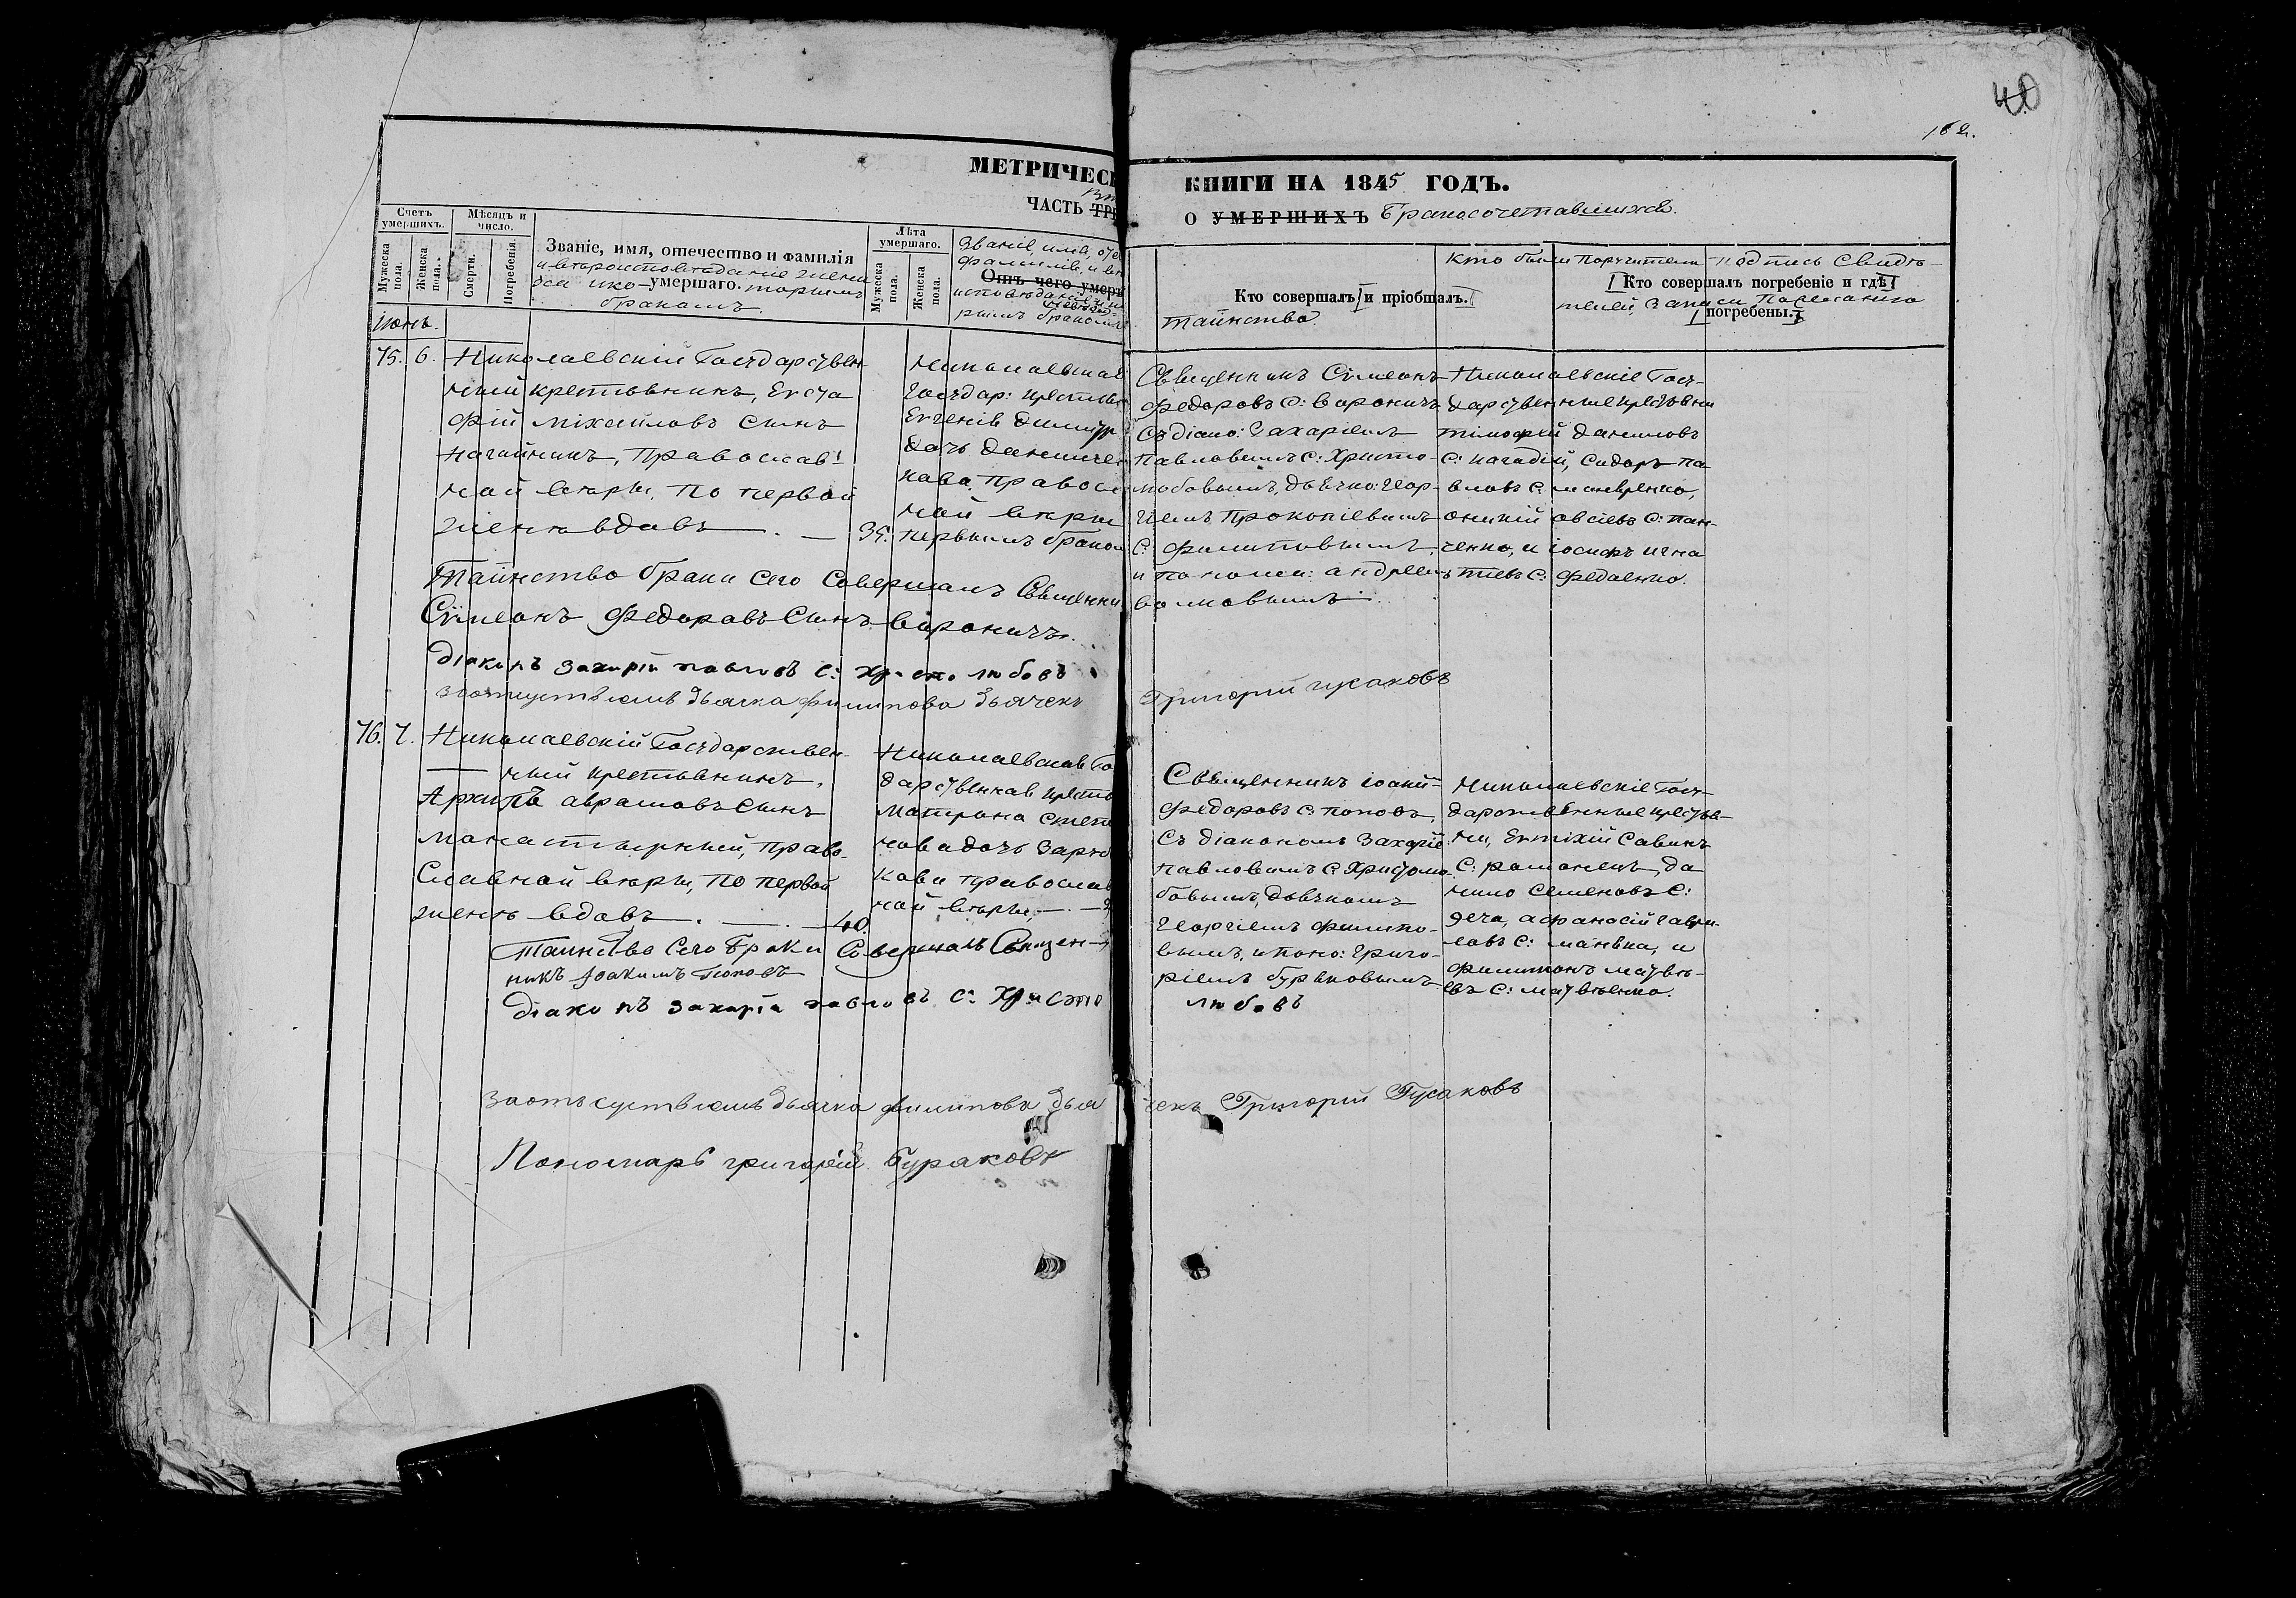 40
162.
МЕТРИЧЕС
КНИГИ НА 1845 ГОДЪ.
ЧАСТЬ ТРЕ
О УМЕРШИХЪ Бракосочетавшихся.
Счетъ умершихъ.
Мужеска пола.
Женска пола.
Мѣсяцъ и число.
Смерти.
Погребенія.
Званіе, имя, отечество и фамилія
и вѣроисповѣданіе жени
умершаго.
бракомъ.
Лѣта умершаго.
Мужеска пола.
Женска пола.
Званіе, имя, оте
фамилія, и вѣ
Отъ чего умеръ
исповѣданіе
рымъ бракомъ
Кто совершалъ и пріобщалъ.
таинство
Кто были поручители
подпись свидѣ-
Кто совершалъ погребеніе и гдѣ
телей записи по желанію
погребены.
іюнь.
75. 6. Николаевскій Государствен-
ный крестьянинъ, Евста
фій Міхайловъ сынъ
Нагайникъ, Православ
ной вѣры, по первой
женѣ вдовъ. — 35.
Николаевская
Государ: крестья
Евгенія Димитр
дочь Даниле
кова, правосл
ной вѣры
первымъ бракомъ
Священникъ Сѵмеонъ
Федоровъ С: Вороничъ
Съ діако: Захаріемъ
Павловымъ С: Христо-
любовымъ, дьячко: Геор-
гіемъ Прокопіевымъ
С: Филиповымъ,
и пономо: Андреемъ
Волковымъ.
Николаевскіе Госу-
дарственные крестьяни
Тимофей Даниловъ
С: Нагадій, Сидоръ Па
вловъ С:
Оникій Овсіевъ С: Пан-
ченко, и Іосифъ Игна
тіевъ С: Федаенко.
Таинство брака сего совершалъ Священни
Сѵмеонъ Федоровъ Сынъ Вороничъ.
Діаконъ Захарій Павловъ С: Христолюбовъ
За отсуствіемъ дьячка Филипова дьячекъ Григорій Гусаковъ
76. 7. Николаевскій Государствен-
ный крестьянинъ,
Архипъ Аврамовъ сынъ
Монастырный, право-
славной вѣры, по первой
женѣ вдовъ. — 40.
Николаевская Го
дарственная кресть
Матрона Степа
нова дочь Заруб
кова православ
ной вѣры, —
Священникъ Іоаки-
Федоровъ С: Поповъ,
Съ діакономъ Захаріе
Павловымъ С: Христолю
бовымъ, дьячкомъ
Георгіемъ Филипо-
вымъ, и поно: Григо-
ріемъ Бураковымъ
Николаевскіе Госу-
дарственные крестья-
ни, Евтихій Савинъ
С: Романецъ, Да
нило Семеновъ С:
Яеча, Афанасій Гаври-
ловъ С: Манька, и
Филимонъ Матвѣе-
въ С: Матвѣенко.
Таинство сего Брака Совершалъ Священ-
никъ Іоакимъ Поповъ
Діаконъ Захарій Павловъ С: Христолюбовъ
За отъсуствіемъ дьячка Филипова дьячекъ Григорій Гусаковъ
Пономарь Григорій Бураковъ